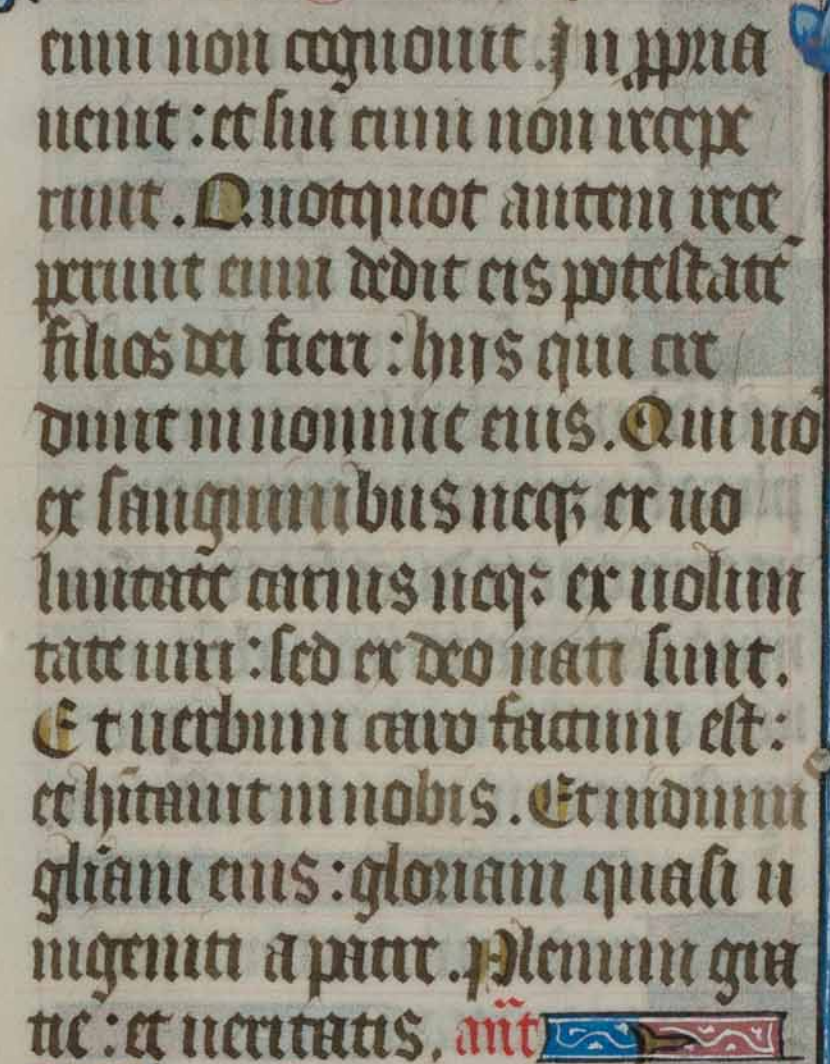 eum non cognouit. In ꝓpria
uenit : et sui eum non recepe
runt. Quotquot autem rece
perunt eum dedit eis potestatē
filios dei fieri : hijs qui cre
dunt in nomine eius. Qui nō
ex sanguinibus neqꝫ ex uo
luntate carnis neqꝫ ex uolun
tate uiri : sed ex deo nati sunt.
Et uerbum caro factum est :
et hītauit in nobis. Et uidimus
glīam eius : gloriam quasi u
nigeniti a patre. Plenum gra
tie : et ueritatis. añt